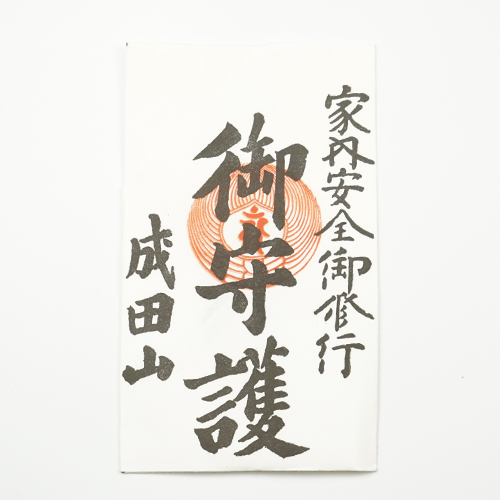 家内安全御修行
御守護
成田山